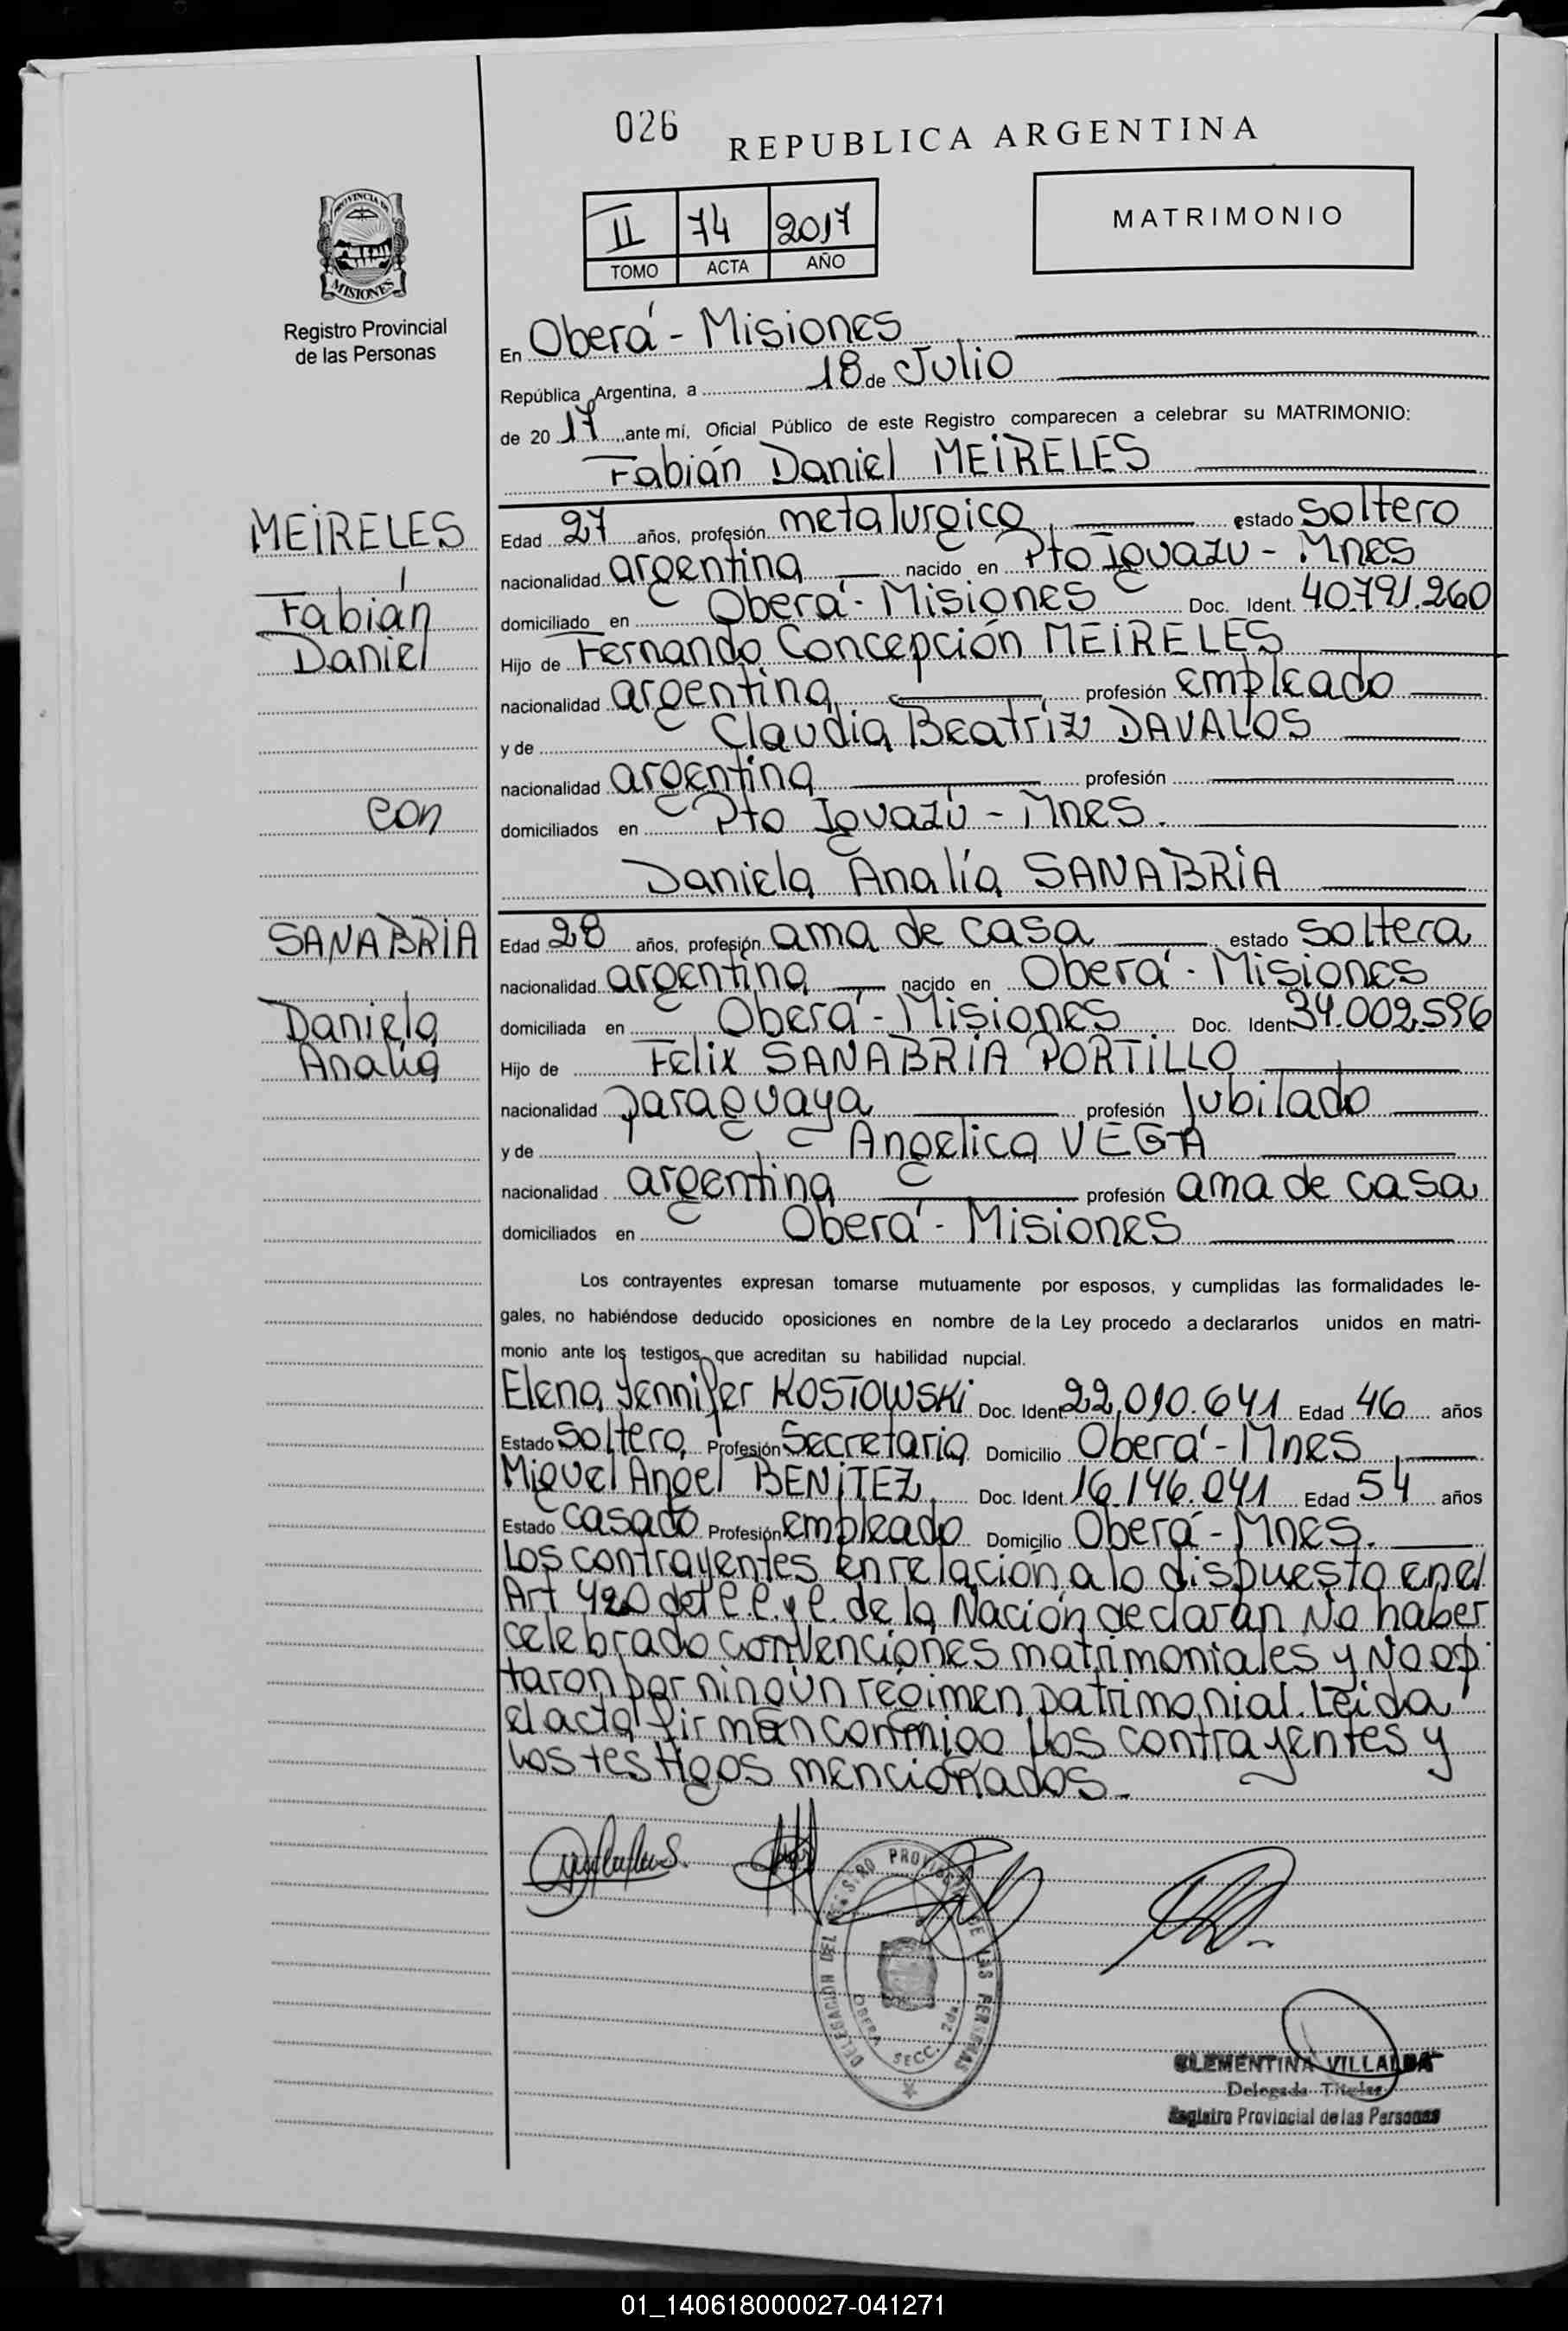 026
REPUBLICA ARGENTINA
II 74 2017
TOMO ACTA AÑO
MATRIMONIO
PROVINCIA DE
MISIONES
Registro Provincial
de las Personas
En Oberá - Misiones
República Argentina, a 18 de Julio
de 20 17 ante mí, Oficial Público de este Registro comparecen a celebrar su MATRIMONIO:
Fabián Daniel MEIRELES
MEIRELES
Fabián
Daniel
con
SANABRIA
Daniela
Analía
Edad 27 años, profesión metalurgico estado soltero
nacionalidad argentina nacido en Pto Iguazu - Mnes
domiciliado en Oberá - Misiones Doc. Ident. 40.791.260
Hijo de Fernando Concepción MEIRELES
nacionalidad argentina profesión empleado
y de Claudia Beatriz DAVALOS
nacionalidad argentina profesión
domiciliados en Pto Iguazú - Mnes.
Daniela Analía SANABRIA
Edad 28 años, profesión ama de casa estado soltera
nacionalidad argentina nacido en Oberá - Misiones
domiciliada en Oberá - Misiones Doc. Ident 34.002.596
Hijo de Felix SANABRIA PORTILLO
nacionalidad paraguaya profesión jubilado
y de Angelica VEGA
nacionalidad argentina profesión ama de casa
domiciliados en Oberá - Misiones
Los contrayentes expresan tomarse mutuamente por esposos, y cumplidas las formalidades le-
gales, no habiéndose deducido oposiciones en nombre de la Ley procedo a declararlos unidos en matri-
monio ante los testigos que acreditan su habilidad nupcial.
Elena Jennifer KOSTOWSKI Doc. Ident 22.010.641 Edad 46 años
Estado Soltera Profesión Secretaria Domicilio Oberá - Mnes
Miguel Angel BENITEZ Doc. Ident. 16.146.041 Edad 54 años
Estado casado Profesión empleado Domicilio Oberá - Mnes.
Los contrayentes en relación a lo dispuesto en el
Art 420 del C.C. y C. de la Nación declaran No haber
celebrado convenciones matrimoniales y No op-
taron por ningún régimen patrimonial. Leida
el acta firman conmigo los contrayentes y
los testigos mencionados.-
DELEGACION DEL REGISTRO PROVINCIAL DE LAS PERSONAS
OBERA SECC. 2da
CLEMENTINA VILLALBA
Delegada Titular
Registro Provincial de las Personas
01_140618000027-041271